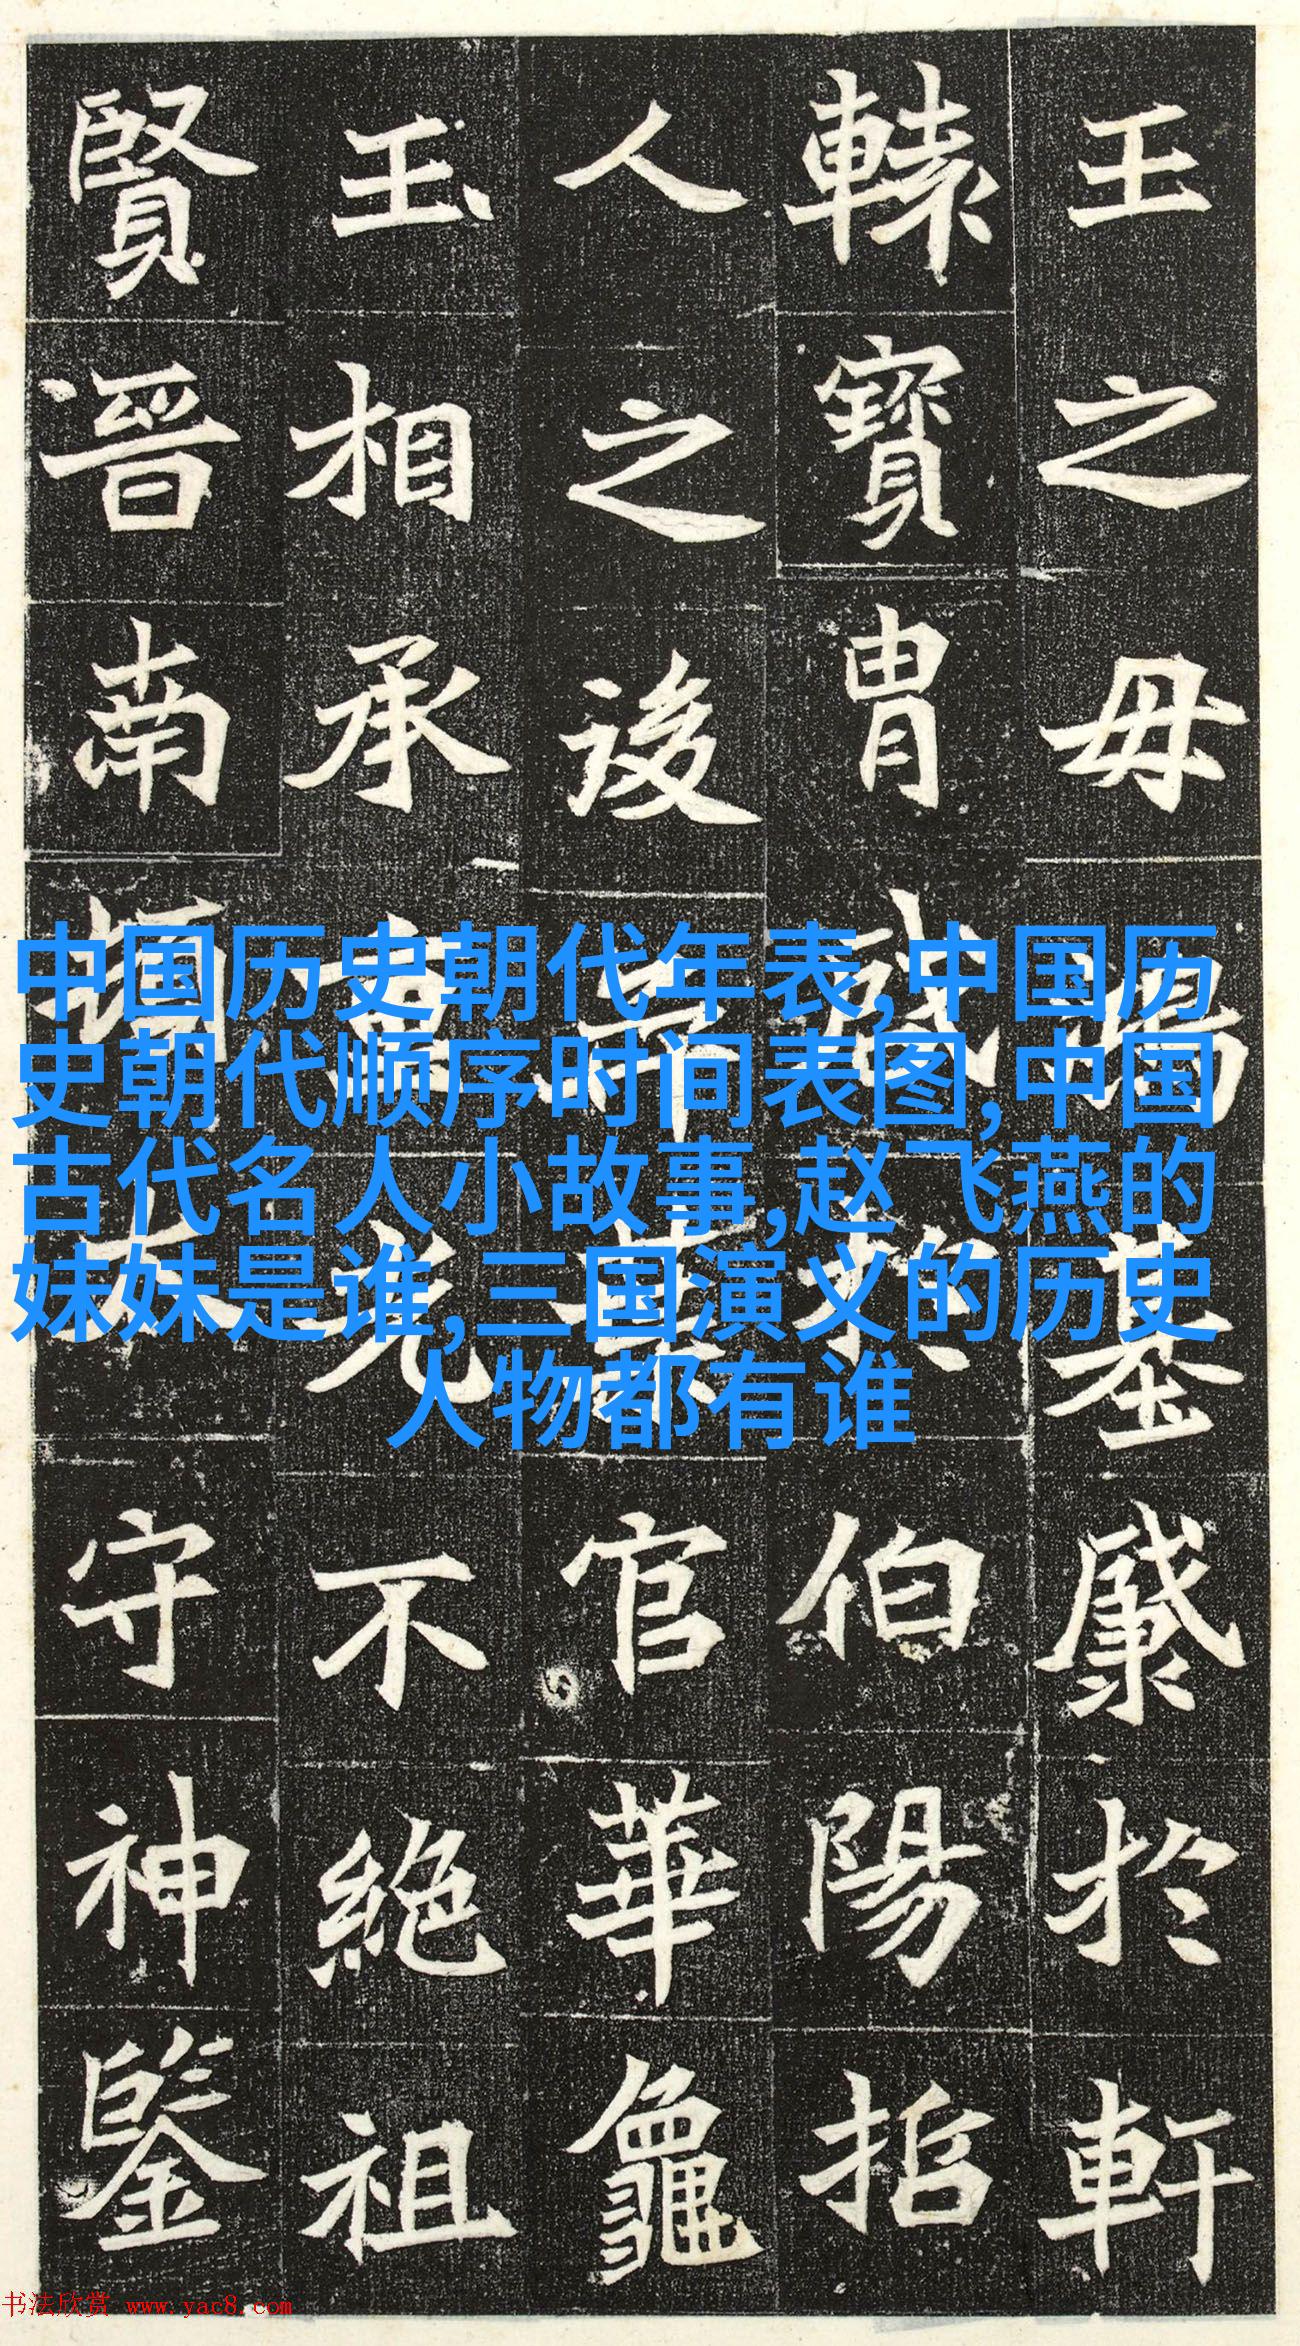 王之毋基於軒
轅寶胄於伯陽
人之後官華龜
玉相承重光不絕祖
賢晉南頓太守神鑒
中国历史朝代年表,中国历
史朝代顺序时间表图,中国
古代名人小故事,赵飞燕的
妹妹是谁,三国演义的历史
人物都有谁
书法欣赏 www.yac8.com